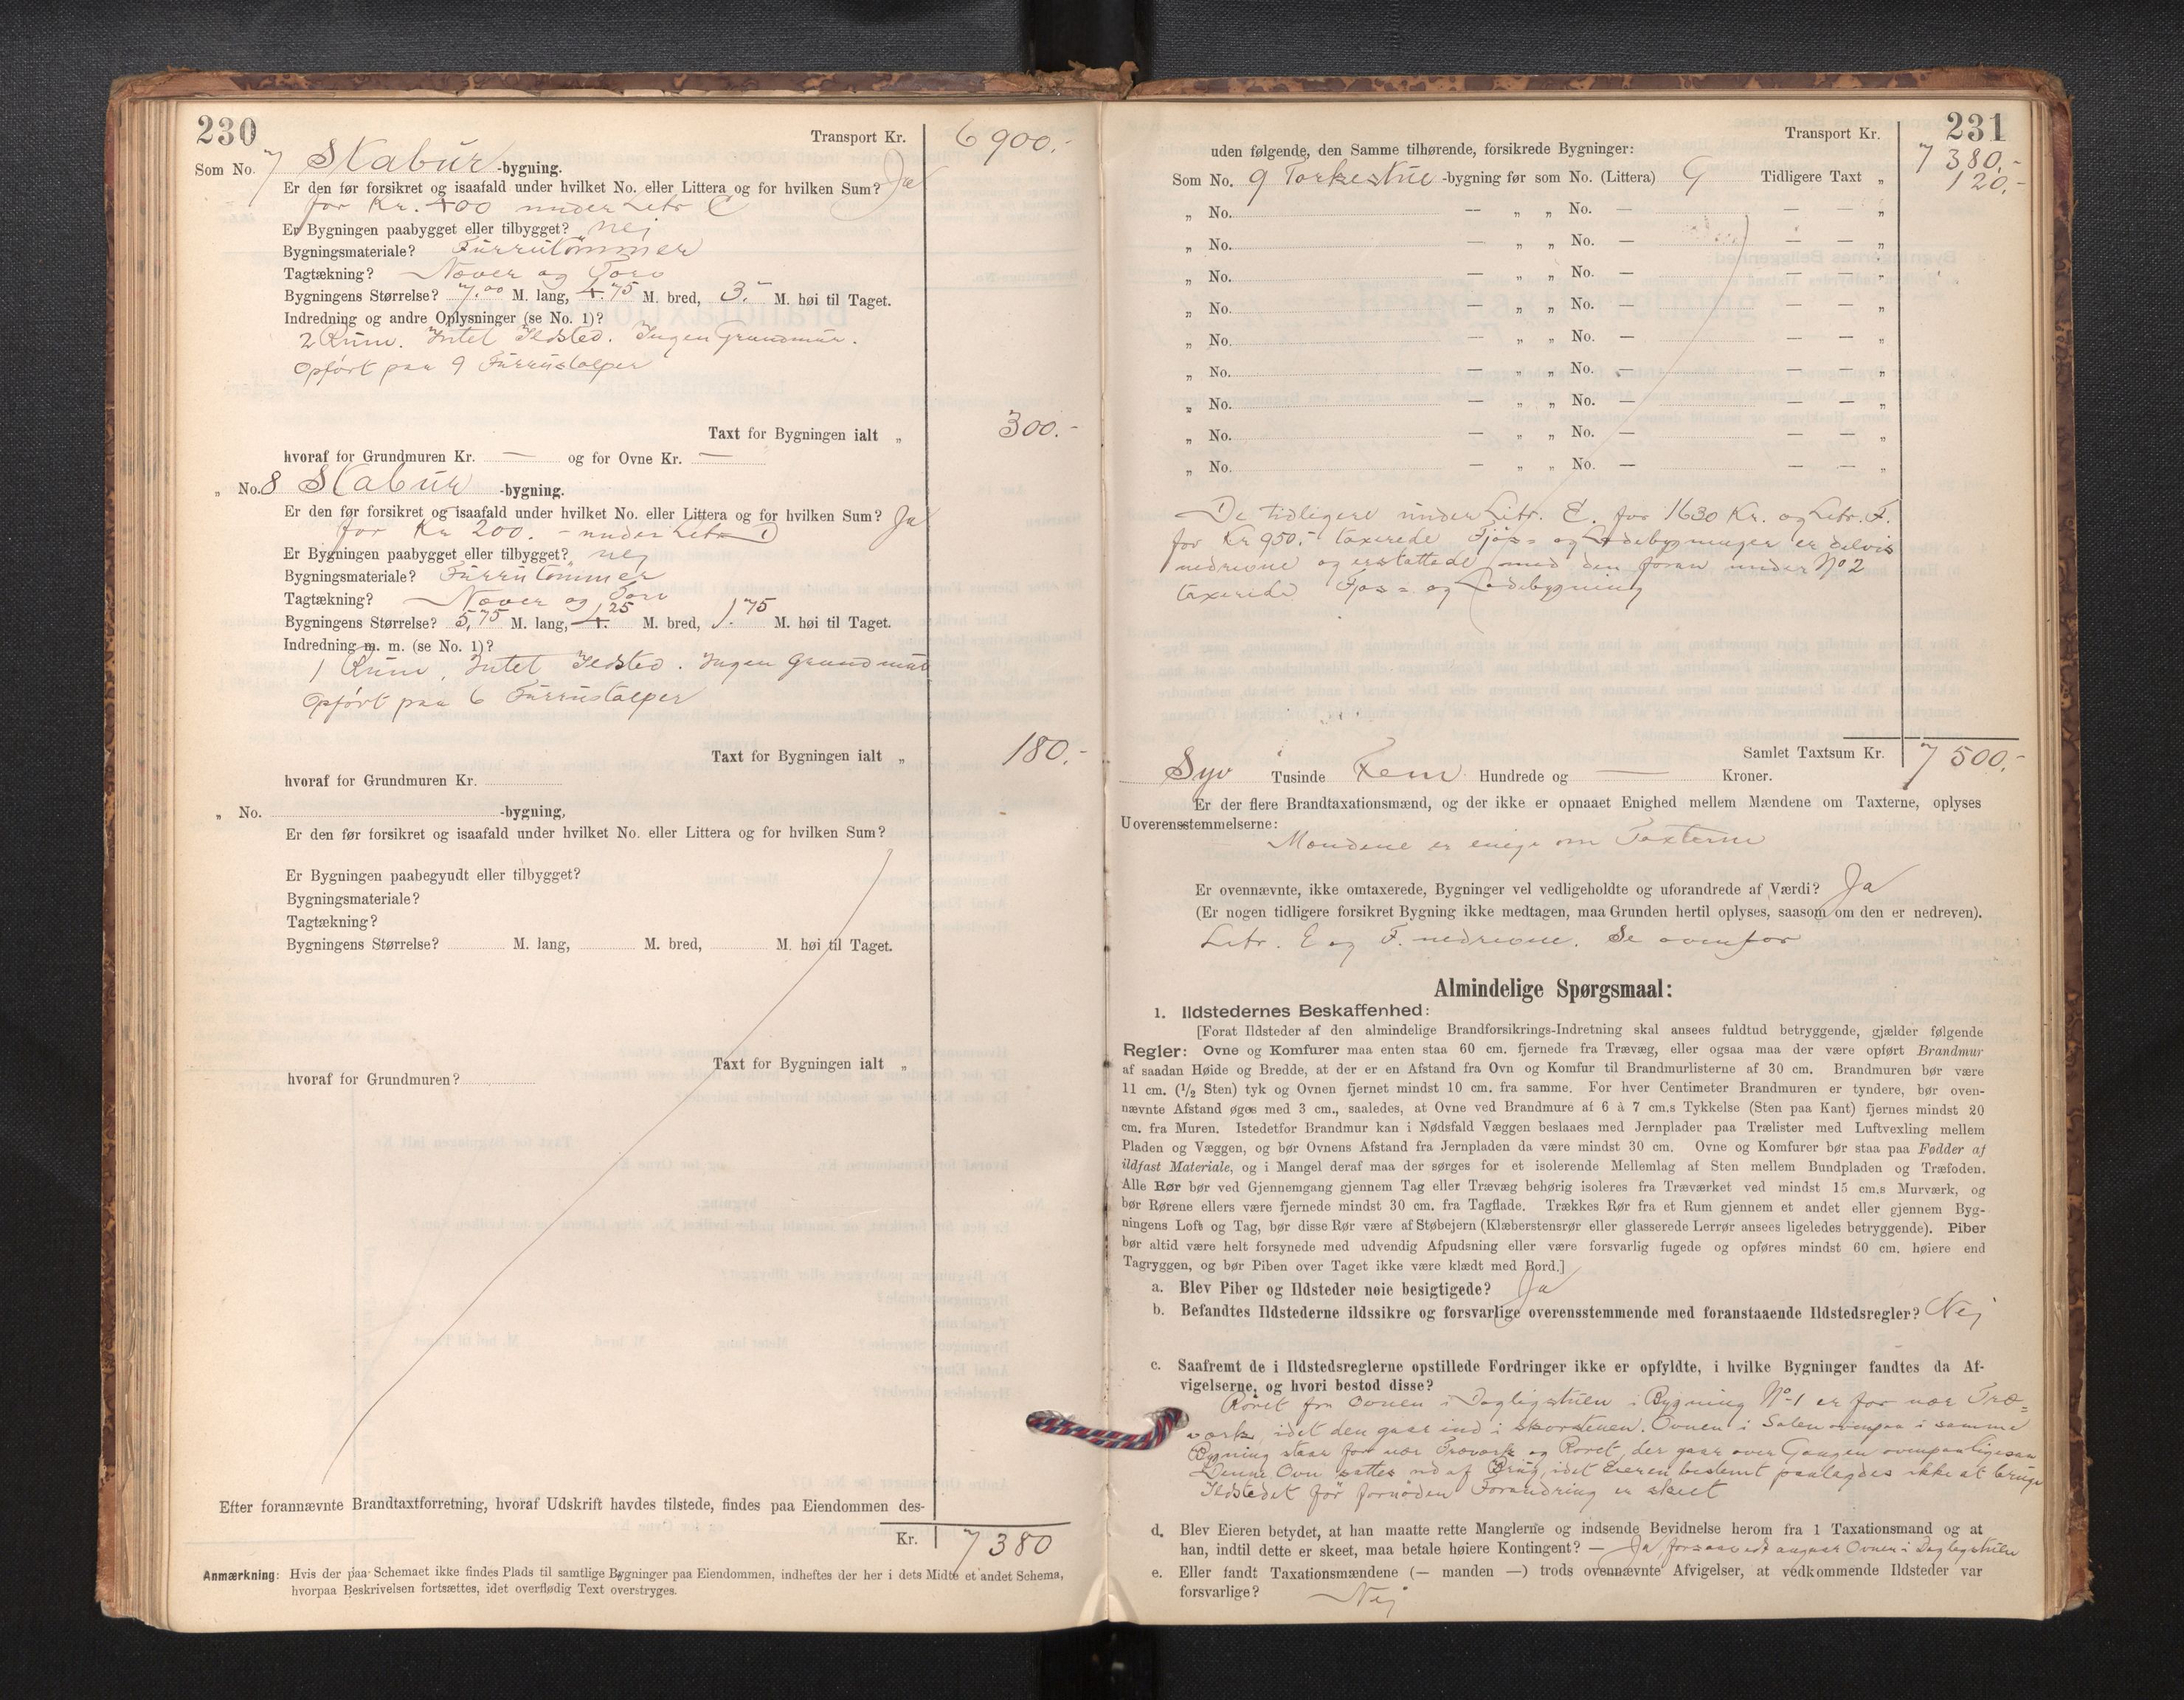 230
Transport Kr. 6900.-
Som No. 7 Stabur -bygning.
Er den før forsikret og isaafald under hvilket No. eller Littera og for hvilken Sum? Ja
for Kr. 400 under Litr C
Er Bygningen paabygget eller tilbygget? nej
Bygningsmateriale? Furrutømmer
Tagtækning? Næver og Torv
Bygningens Størrelse? 7.00 M. lang, 4.75 M. bred, 3.- M. høi til Taget.
Indredning og andre Oplysninger (se No. 1)?
2 Rum. Intet Ildsted. Ingen Grundmur.
Opført paa 9 Furrustolper
Taxt for Bygningen ialt „ 300.-
hvoraf for Grundmuren Kr. — og for Ovne Kr. —
„ No. 8 Stabur -bygning.
Er den før forsikret og isaafald under hvilket No. eller Littera og for hvilken Sum? Ja
for Kr 200. - under Litr D
Er Bygningen paabygget eller tilbygget? nej
Bygningsmateriale? Furrutømmer
Tagtækning? Næver og Torv
Bygningens Størrelse? 5,75 M. lang, 4.25 M. bred, 1.75 M. høi til Taget.
Indredning m. m. (se No. 1)?
1 Rum. Intet Ildsted. Ingen Grundmur
Opført paa 6 Furrustolper
Taxt for Bygningen ialt „ 180.-
hvoraf for Grundmuren Kr.
„ No. -bygning,
Er den før forsikret og isaafald under hvilket No. eller Littera og for hvilken Sum?
Er Bygningen paabegyudt eller tilbygget?
Bygningsmateriale?
Tagtækning?
Bygningens Størrelse? M. lang, M. bred, M. høi til Taget.
Taxt for Bygningen ialt „
hvoraf for Grundmuren?
Efter forannævnte Brandtaxtforretning, hvoraf Udskrift havdes tilstede, findes paa Eiendommen des-
Kr. 7380
Anmærkning: Hvis der paa Schemaet ikke findes Plads til samtlige Bygninger paa Eiendommen, indheftes der her i dets Midte et andet Schema,
hvorpaa Beskrivelsen fortsættes, idet overflødig Text overstryges.
231
Transport Kr. 7380,-
uden følgende, den Samme tilhørende, forsikrede Bygninger:
Som No. 9 Torkestue -bygning før som No. (Littera) G Tidligere Taxt „ 120,-
„ No. — „ „ No. — — — „
„ No. — „ „ No. — — — „
„ No. — „ „ No. — — — „
„ No. — „ „ No. — — — „
„ No. — „ „ No. — — — „
„ No. — „ „ No. — — — „
„ No. — „ „ No. — — — „
„ No. — „ „ No. — — — „
„ No. — „ „ No. — — — „
De tidligere under Litr. E. for 1630 Kr. og Litr. F.
for Kr 950,- taxerede Fjøs- og Ladebygninger er delvis
nedrevne og erstattede med den foran under No 2
taxerede Fjøs- og Ladebygning
Samlet Taxtsum Kr. 7500,-
Syv Tusinde Fem Hundrede og — Kroner.
Er der flere Brandtaxationsmænd, og der ikke er opnaaet Enighed mellem Mændene om Taxterne, oplyses
Uoverensstemmelserne:
Mændene er enige om Taxterne
Er ovennævnte, ikke omtaxerede, Bygninger vel vedligeholdte og uforandrede af Værdi? Ja
(Er nogen tidligere forsikret Bygning ikke medtagen, maa Grunden hertil oplyses, saasom om den er nedreven).
Litr. E og F. nedrevne. Se ovenfor
Almindelige Spørgsmaal:
1. Ildstedernes Beskaffenhed:
[Forat Ildsteder af den almindelige Brandforsikrings-Indretning skal ansees fuldtud betryggende, gjælder følgende
Regler: Ovne og Komfurer maa enten staa 60 cm. fjernede fra Trævæg, eller ogsaa maa der være opført Brandmur
af saadan Høide og Bredde, at der er en Afstand fra Ovn og Komfur til Brandmurlisterne af 30 cm. Brandmuren bør være
11 cm. (1/2 Sten) tyk og Ovnen fjernet mindst 10 cm. fra samme. For hver Centimeter Brandmuren er tyndere, bør oven-
nævnte Afstand øges med 3 cm., saaledes, at Ovne ved Brandmure af 6 à 7 cm.s Tykkelse (Sten paa Kant) fjernes mindst 20
cm. fra Muren. Istedetfor Brandmur kan i Nødsfald Væggen beslaaes med Jernplader paa Trælister med Luftvexling mellem
Pladen og Væggen, og bør Ovnens Afstand fra Jernpladen da være mindst 30 cm. Ovne og Komfurer bør staa paa Fødder af
ildfast Materiale, og i Mangel deraf maa der sørges for et isolerende Mellemlag af Sten mellem Bundpladen og Træfoden.
Alle Rør bør ved Gjennemgang gjennem Tag eller Trævæg behørig isoleres fra Træværket ved mindst 15 cm.s Murværk, og
bør Rørene ellers være fjernede mindst 30 cm. fra Tagflade. Trækkes Rør fra et Rum gjennem et andet eller gjennem Byg-
ningens Loft og Tag, bør disse Rør være af Støbejern (Klæberstensrør eller glasserede Lerrør ansees ligeledes betryggende). Piber
bør altid være helt forsynede med udvendig Afpudsning eller være forsvarlig fugede og opføres mindst 60 cm. høiere end
Tagryggen, og bør Piben over Taget ikke være klædt med Bord.]
a. Blev Piber og Ildsteder nøie besigtigede? Ja
b. Befandtes Ildstederne ildssikre og forsvarlige overensstemmende med foranstaaende Ildstedsregler? Nej
c. Saafremt de i Ildstedsreglerne opstillede Fordringer ikke er opfyldte, i hvilke Bygninger fandtes da Af-
vigelserne, og hvori bestod disse?
Røret fra Ovnen i Dagligstuen i Bygning No 1 er for nær Træ-
værk, idet den gaar ind i skorstenen. Ovnen i Salen ovenpaa i samme
Bygning staar for nær Træværk og Røret, der gaar over Gangen ovenpaa ligesaa
Denne Ovn sattes ud af Brug, idet Eieren bestemt paalagdes ikke at bruge
Ildstedet før fornøden Forandring er skeet
d. Blev Eieren betydet, at han maatte rette Manglerne og indsende Bevidnelse herom fra 1 Taxationsmand og at
han, indtil dette er skeet, maa betale høiere Kontingent? — Ja forsaavidt angaar Ovnen i Dagligstuen
e. Eller fandt Taxationsmændene (— manden —) trods ovennævnte Afvigelser, at vedkommende Ildsteder var
forsvarlige? Nej